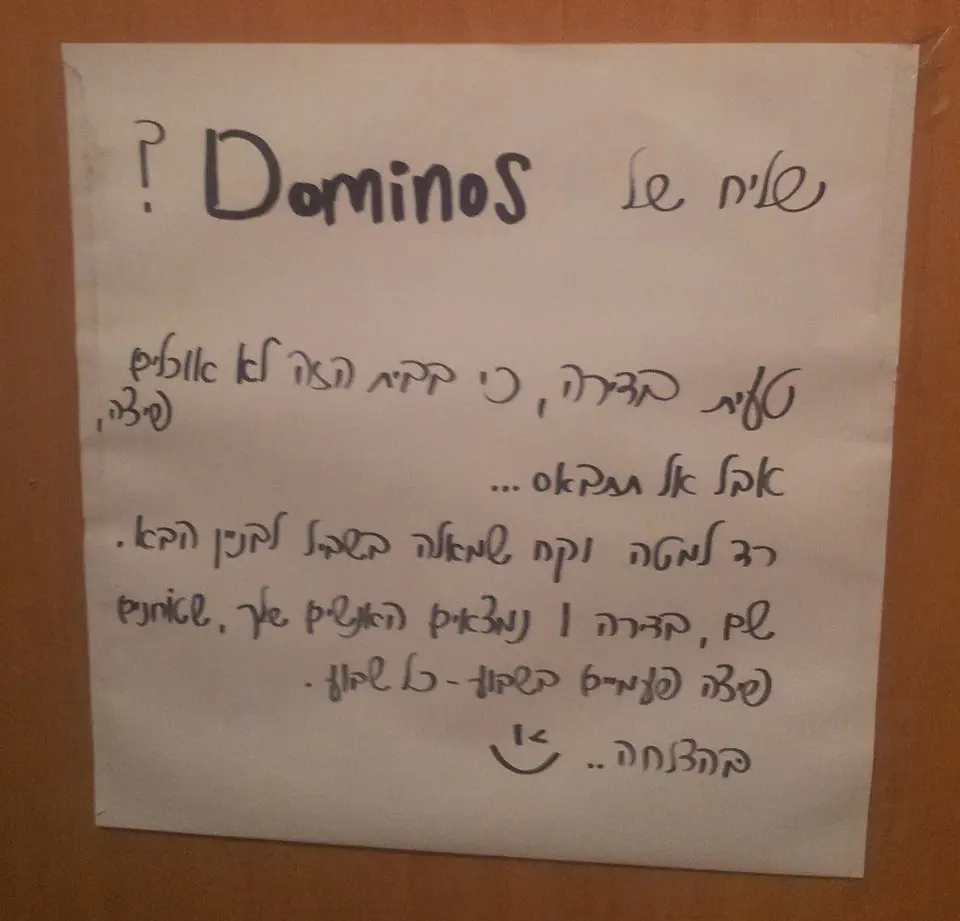 שליח של Dominos?
טעית בדירה, כי בבית הזה לא אוכלים
פיצה,
אבל אל תתבאס...
רד למטה וקח שמאלה בשביל לבניין הבא.
שם, בדירה 1 נמצאים האנשים שלך, שטוחנים
פיצה פעמיים בשבוע - כל שבוע.
בהצלחה..